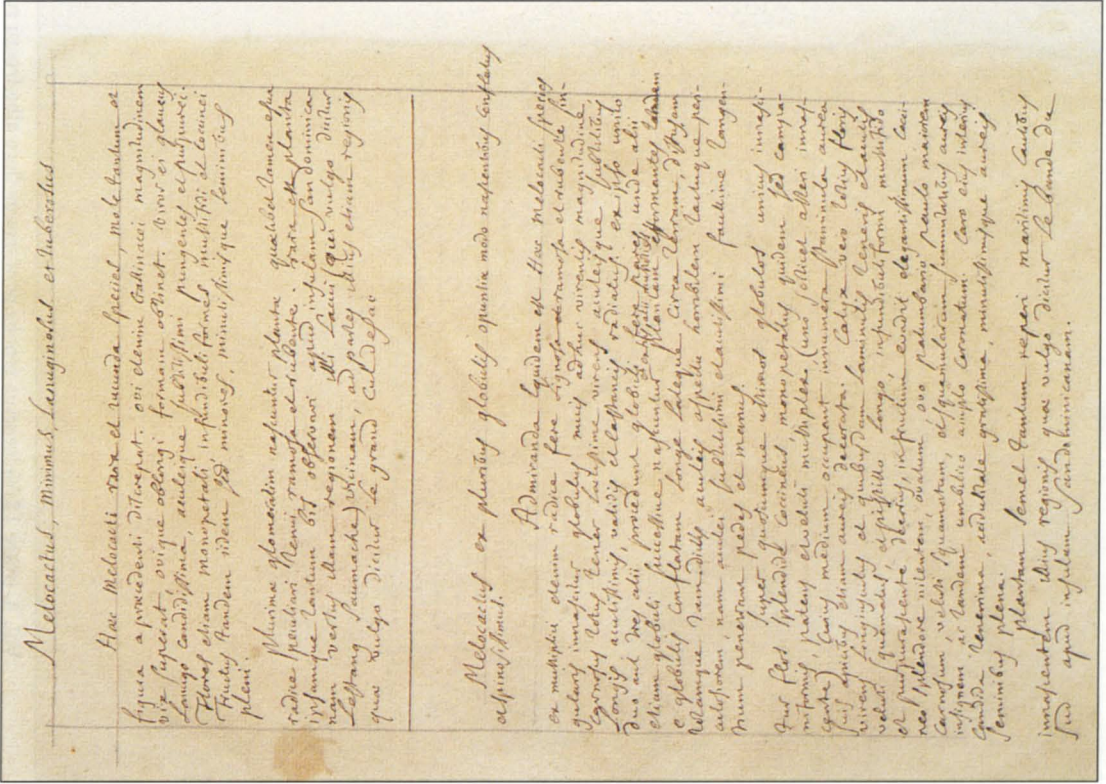 Melocactus, minimus, Lanuginosus et tuberosus
Haec Melocacti rara et iucunda species, mole tantum et
figura a praecedenti discrepat. ovi etenim Gallinacei magnitudinem
vix superat, ovique oblongi formam obtinet. viror ei glaucus
Lanugo candidissima, aculeique subtilissimi pungentes et purpurei.
Flores etiam monopetali infundibuliformes mussissi et coccinei
Fructus tandem iidem sed minores, minutissimisque seminibus
pleni.
plurimae glomeratim nascuntur plantae quaelibet tamen sua
radice peculiari Nempe ramosa et rubente. rara est planta
ipsamque tantum bis observavi apud insulam San dominica-
nam versus illam regionem illi Lacui (qui vulgo dicitur
L'estang saumache) vicinam, ad partes illius etiam regionis
quae vulgo dicitur le grand cul de sac
Melocactus ex pluribus globulis opuntiae modo nascentibus conflatus
ac spinosissimus.
Admiranda equidem est Haec melocacti species
ex multiplici etenim radice fere lignosa et ramosa et rubente sin-
gularis innascitur globulus nucis adhuc virentis magnitudine
carnosus totus tener latissime virens aculeisque subtilibus
Longis acutissimis, validis et castaneis radiatus. ex isto unico
duo aut tres alii prodeunt globuli fere pares unde alii
etiam globuli successive nascuntur plantam efformantes tandem
e globulis conflatam longe lateque circa terram diffusam
totamque tandiu aculeis aspectu horribilem tactuque per-
asperam, nam aculei subtilissimi et acutissimi facillime tangen-
tium penetrant pedes et manus.
super quoscumque ultimos globulos unicus innasci-
tur flos splendide coccineus, monopetalus quidem sed campa-
niformis, patens et veluti multiplex (uno scilicet alteri innas-
cente) cuius medium occupant innumera staminula aurea
suis apicibus etiam aureis decorata. Calyx vero totus floris
virens singulis et quibusdam laminulis teneris et acutis
veluti squamatus, et pistillo longo, infundibuliformi mussisso
et purpurascente desuper, in fructum evadit elegantissimum cocci-
neo splendore nitentem, ovatum, ovo palumbario paulo maiorem
Carnosum, veluti squamatum, et squamularum summitatibus aureis
insignem ac tandem umbilico amplo coronatum. Caro eius interius
candida tenerrima, aciditate gratissima, minutissimisque aureis
seminibus plena.
plantam semel tantum reperi maritimis cautibus
innascentem illius regionis quae vulgo dicitur le bande du
sud apud insulam sandominicanam.